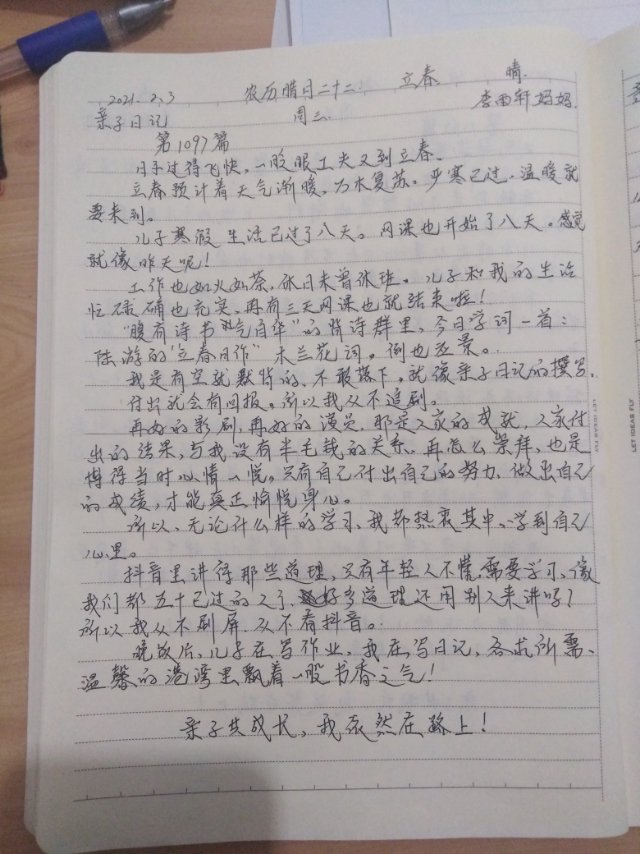 2021.2.3 农历腊月二十二 立春 晴
亲子日记 周三 李雨轩妈妈
第1097篇
日子过得飞快，一眨眼工夫又到立春。
立春预计着天气渐暖，万水复苏。严寒已过，温暖就
要来到。
儿子寒假生活已过了八天。网课也开始了八天。感觉
就像昨天呢！
工作也如火如荼，休日未曾休班。儿子和我的生活
忙碌确也充实，再有三天网课也就结束啦！
"腹有诗书气自华"的背诗群里，今日学词一首：
陆游的"立春日作"木兰花词。倒也应景。
我是有空就默背的，不敢落下。就像亲子日记的撰写，
付出就会有回报。所以我从不追剧。
再好的影剧，再好的演员，那是人家的成就，人家付
出的结果，与我没有半毛钱的关系。再怎么崇拜，也是
博得当时心情一悦。只有自己付出自己的努力，做出自己
的成绩，才能真正愉悦身心。
所以，无论什么样的学习，我都热衷其中，学到自己
心里。
抖音里讲得那些道理，只有年轻人不懂，需要学习，像
我们都五十已过的人了，好多道理还用别人来讲吗？
所以我从不刷屏，从不看抖音。
晚饭后，儿子在写作业，我在写日记，各取所需，
温馨的港湾里飘着一股书香之气！
亲子共成长，我依然在路上！
LET IDEAS FLY